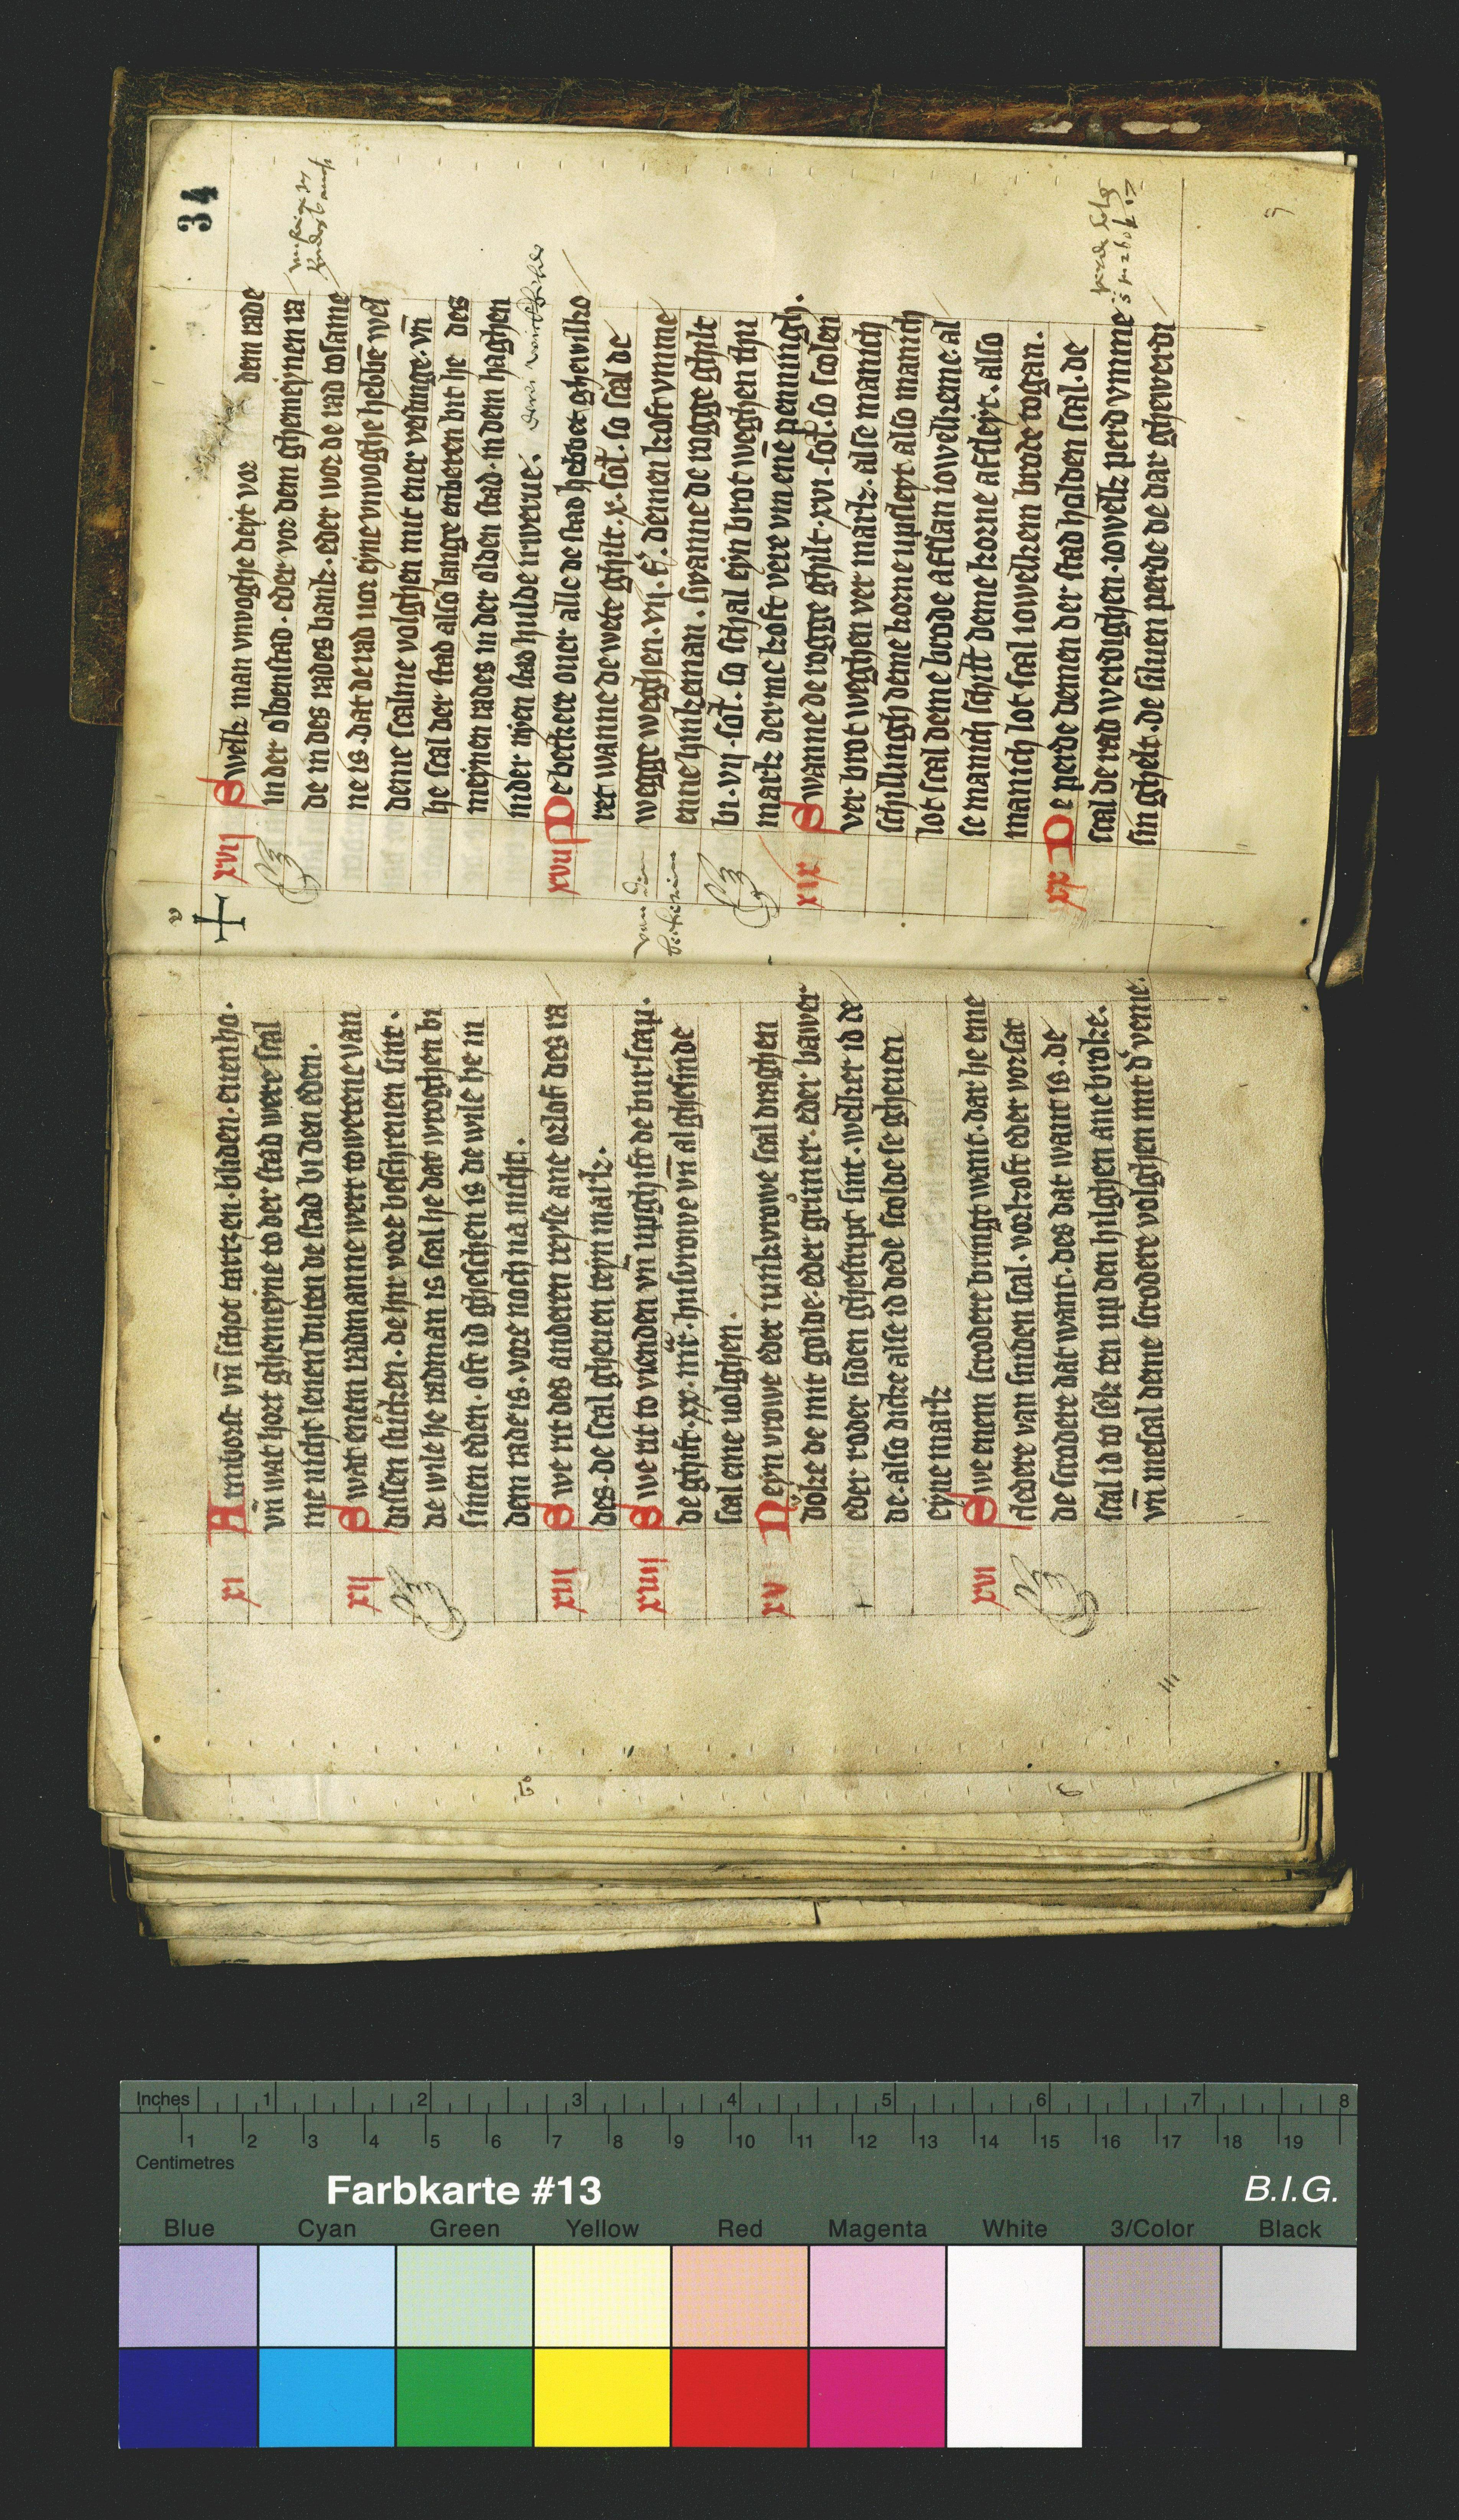 xi Armborst vn̄ schot tartzen. bliden. euenho.
vn̄ wat hort ghemeyne to der stad were scal
me nicht lenen buten de stad bi den eden.
xij Swat enem radmanne wert towetene van
dassen stůcken. de hir vore beschreuen sint.
de wile he radman is scal he dat wroghen bi
sinen eden. oft id gheschen is de wile he in
dem rade is. vore noch na nicht.
xiij Swe rit des anderen reyse ane orlof des ra
des. de scal gheuen teyn mark.
xiiij Swe rit to vienden vn̄ upghift de burscap.
de ghift. xx. mr. husvrowe vn̄ al ghesinde
scal eme uolghen.
xv Neyn vrowe eder iunkvrowe scal draghen
dŏke de mit golde. eder grůner. eder bawer
eder roder siden ghestript sint. welker id de
de. also dicke alse id dede scolde se gheuen
eyne mark
xvi Swe enem scrodere bringt want. dar he eme
cledere van sniden scal. vorkoft eder vorsat
de scrodere dat want. des dat want is. de
scal id to sek ten up den hilghen ane broke.
vn̄ me scal deme scrodere volghen mit d' veme.
34
xvij Swelk man vnvoghe deyt vor dem rade
in der oldenstad. eder vor den ghemeynen ra
de in des rades bank. eder wor de rad tosame
ne is. dat de rad uor eyne vnvoghe hebbē wel
denne scalme volghen mit ener vestinge. vn̄
he scal der stad also lange enberen bit he des
meynen rades in der olden stad. in dem haghen
inder niyen stad hulde irwerue.
xviij De beckere ouer alle de stad hebbet ghewilko
ret wanne de wete ghilt. x. sol. so scal de
wegge weghen. vij. f. demen koft vmme
enne hinkeman. swanne de rogge ghilt
bi. vij. sol. so schal eyn brot weghen thu
mark dermekoft vere vm enē penningh.
xix Swanne de rogge ghilt. xvi. sol. so scolen
ver brot weghen ver mark. alse manich
schillingh deme korne upsleyt. also manich
lot scal deme brode afslan iowelkeme. al
se manich schilt deme korne afsleyt. also
manich lot scal iowelkem brode togan.
xx De perde demen der stad halden scal. de
scal de rad werdighen. iowelk perd vmme
sin ghelt. de siluen perde de dar ghewerdi
Inches 1 2 3 4 5 6 7 8
1 2 3 4 5 6 7 8 9 10 11 12 13 14 15 16 17 18 19
Centimetres
Farbkarte #13 B.I.G.
Blue Cyan Green Yellow Red Magenta White 3/Color Black